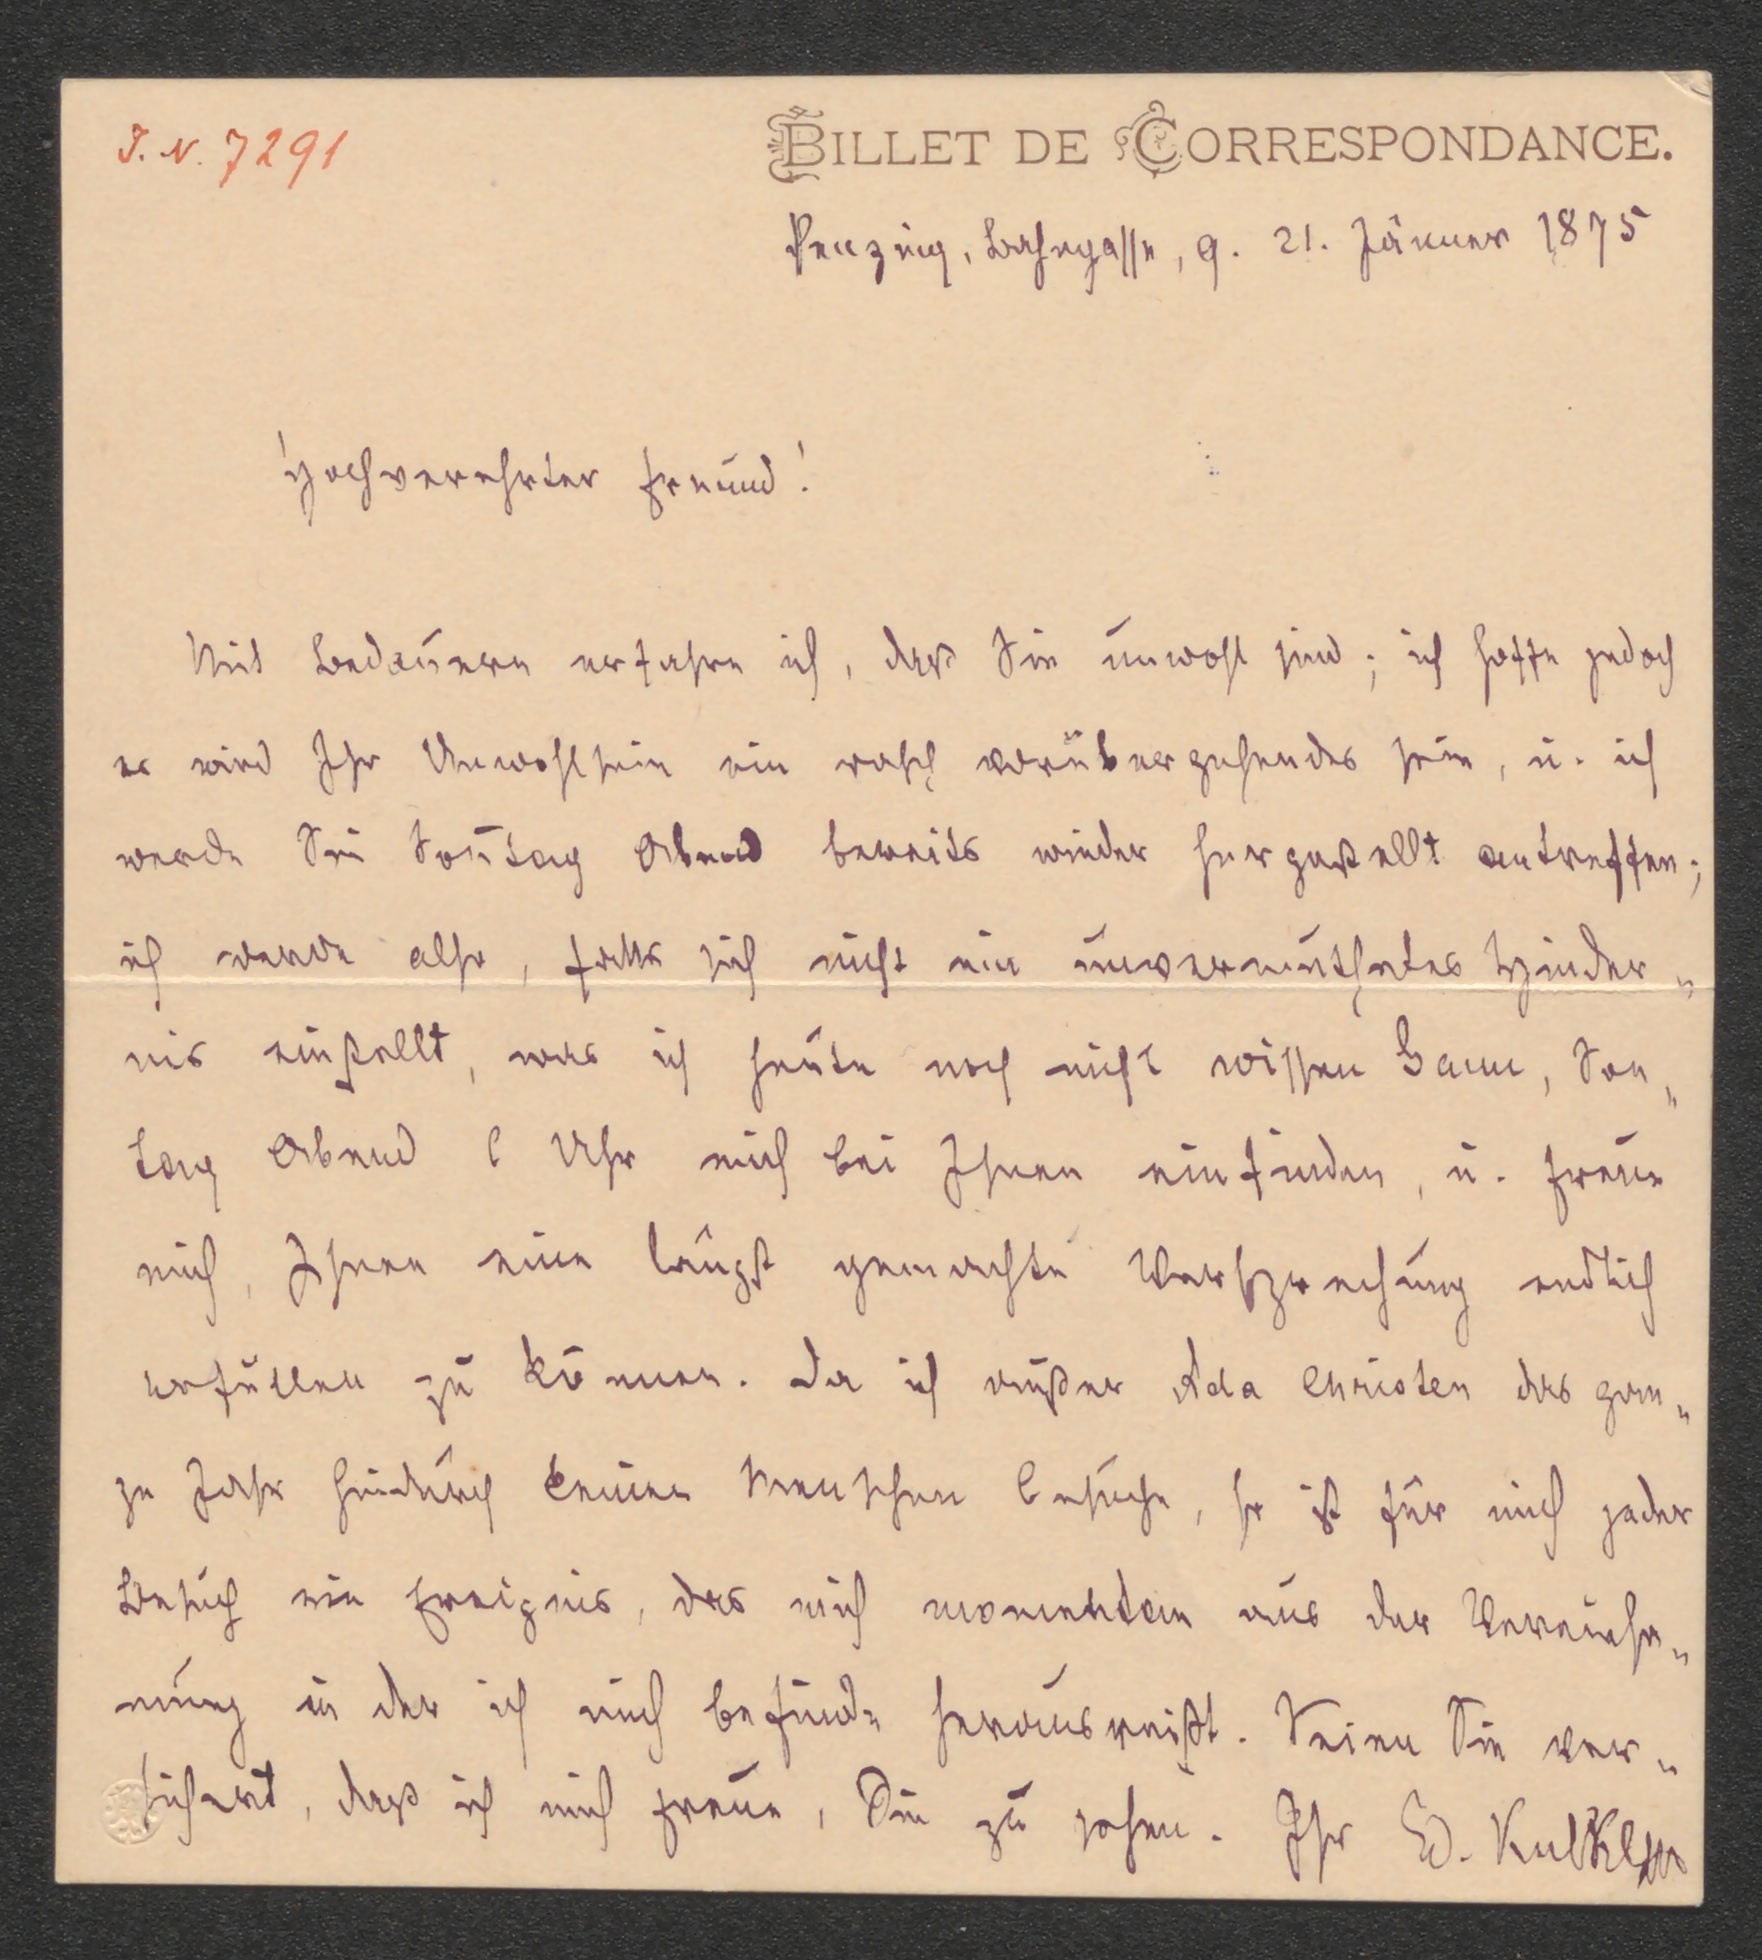 J. N. 7291
BILLET DE CORRESPONDANCE.
Penzing, Bahngasse, 9. 21. Jänner 1875
Hochverehrter Freund!
Mit Bedauern erfahre ich, dass Sie unwohl sind; ich hoffe jedoch
es wird Ihr Unwohlsein ein rasch vorübergehendes sein, u. ich
werde Sie Soñtag Abend bereits wieder hergestellt antreffen;
ich werde also, falls sich nicht ein unvermuthetes Hinder„
nis einstellt, was ich heute noch nicht wissen kann, Son„
tag Abend Uhr mich bei Ihnen einfinden, u. freue
mich, Ihnen eine längst gemachte Versprechung endlich
erfüllen zu können. Da ich außer Ada Christen das gan„
ze Jahr hindurch keinen Menschen besuche, so ist für mich jeder
Besuch ein Ereignis, das mich momentan aus der Vereinsa„
mung in der ich mich befinde herausreißt. Seien Sie ver„
sichert, daß ich mich freue, Sie zu sehen. Ihr Ed. Kulke